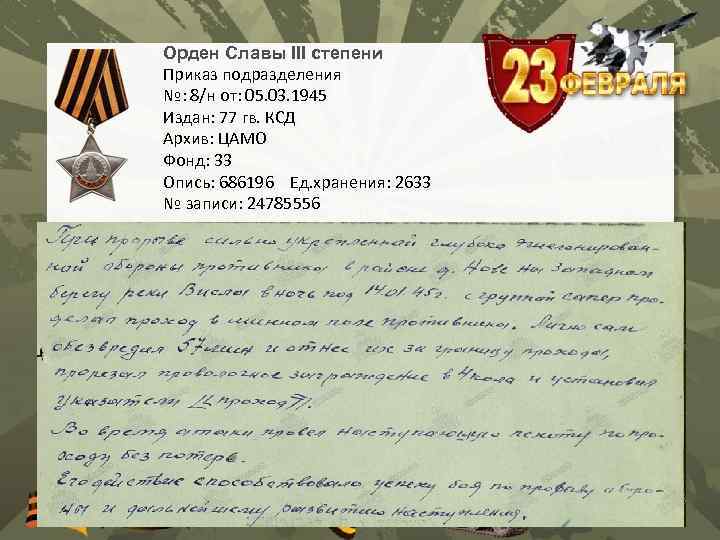 Орден Славы III степени
Приказ подразделения
№: 8/н от: 05.03.1945
Издан: 77 гв. КСД
Архив: ЦАМО
Фонд: 33
Опись: 686196 Ед.хранения: 2633
№ записи: 24785556
23 ФЕВРАЛЯ
При прорыве сильно укрепленной глубоко эшелонирован-
ной обороны противника в районе д. Нове на западном
берегу реки Висла в ночь под 14.01.45г. с группой сапер про-
делал проход в минном поле противника. Лично сам
обезвредил 57 мин и отнес их за границу прохода,
прорезал проволочное заграждение в 4 кола и установил
указатели проход.
Во время атаки провел наступающую пехоту по про-
ходу без потерь.
Его действие способствовало успеху боя по прорыву оборо-
ны и дальнейшему развитию наступления.